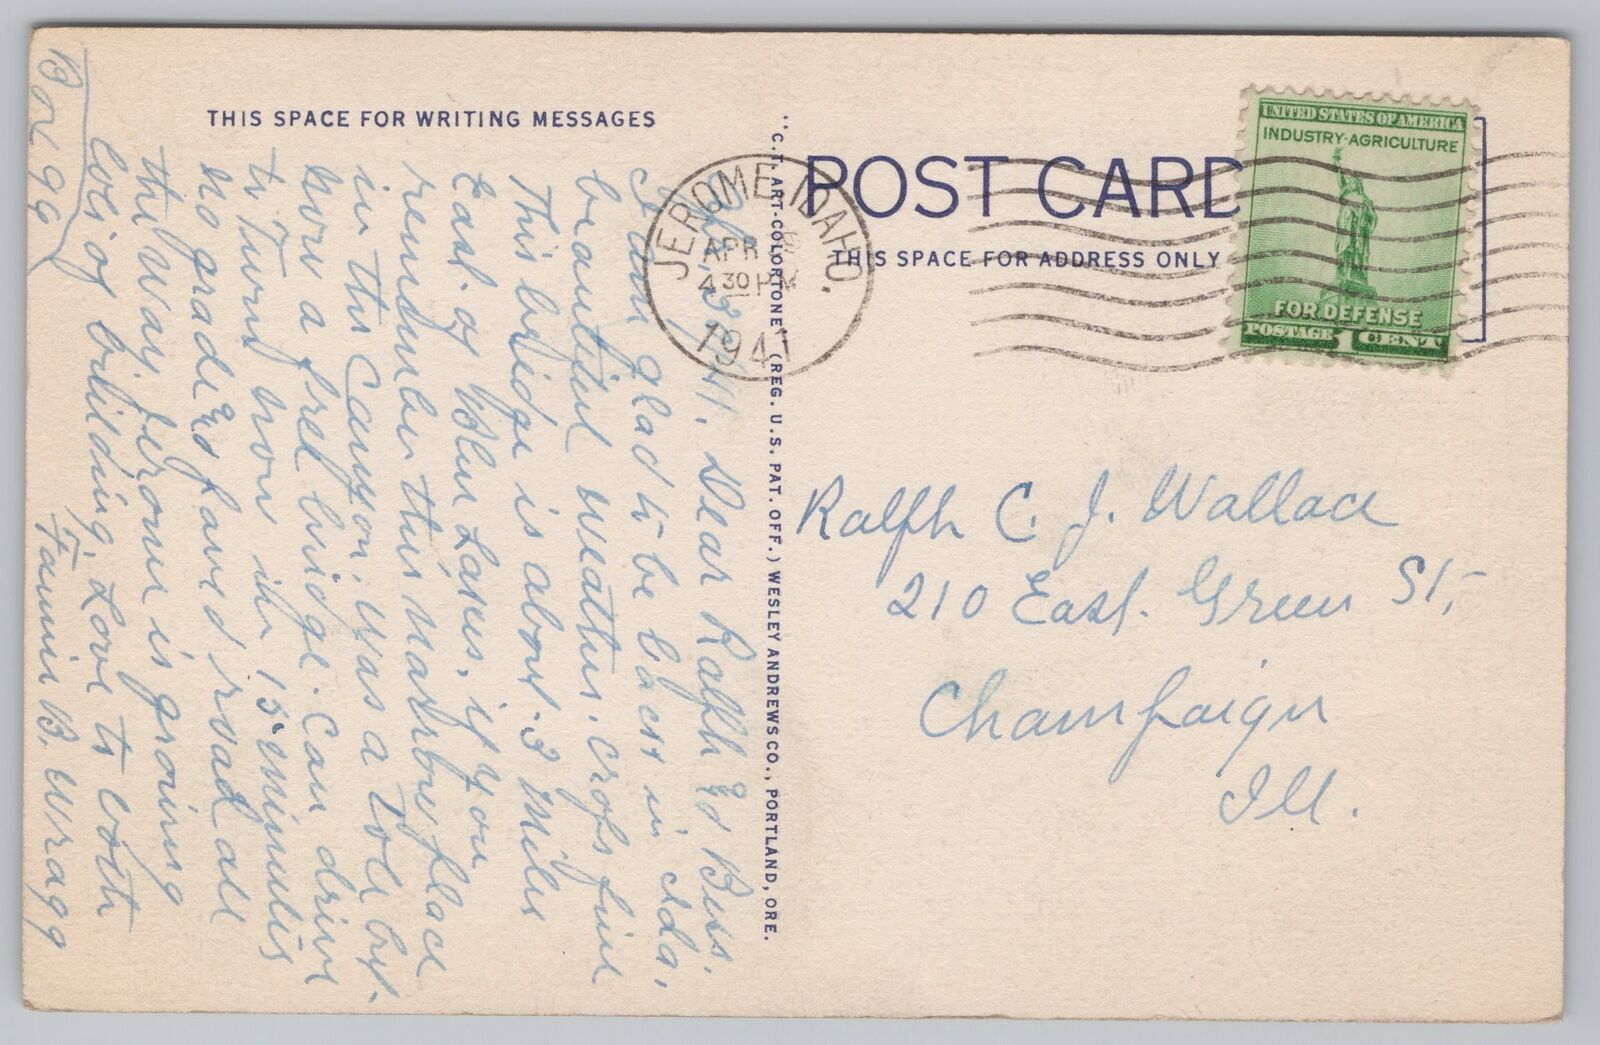 THIS SPACE FOR WRITING MESSAGES
41. Dear Ralph & Bess.
I am glad to be back in Ida,
beautiful weather. crops fine
This bridge is about 3 miles
East. of Blue Lakes, if you
remember this narrow place
in the Canyon. was a Toll but.
now a free bridge. Can drive
to Town now in 15 minutes
no grade & paved road all
the way. Jerome is growing
lots of building, Love to both
Fannie B. Wragg
Box 99
"C.T. ART-COLORTONE" (REG. U.S. PAT. OFF.) WESLEY ANDREWS CO., PORTLAND, ORE.
POST CARD
THIS SPACE FOR ADDRESS ONLY
JEROME, IDAHO.
APR
4 30 PM
1941
UNITED STATES OF AMERICA
INDUSTRY-AGRICULTURE
FOR DEFENSE
POSTAGE 1 CENT
Ralph C. J. Wallace
210 East. Green St,
Champaign
Ill.